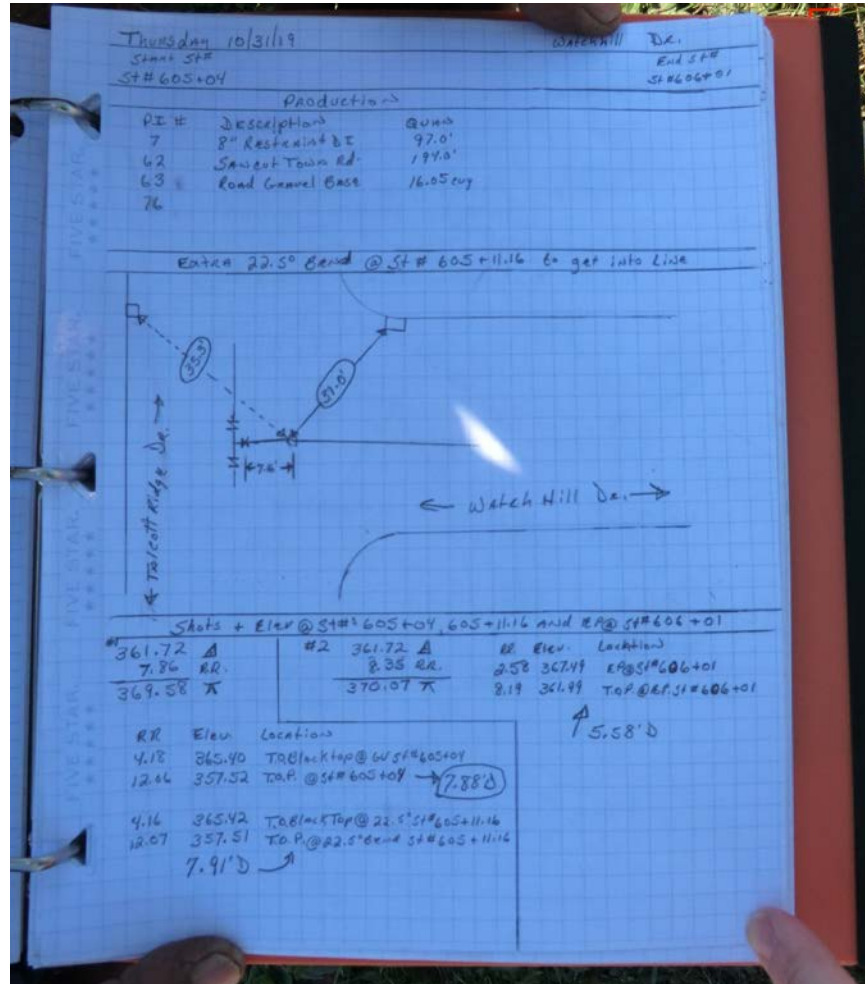 Thursday 10/31/19 Watchhill Dr.
Start St# End St#
St# 605+04 St #606+01
Production
PI # Description Quan
7 8" Restraint DI 97.0'
62 Sawcut Town Rd. 194.0'
63 Road Gravel Base 16.05 cuy
76
Extra 22.5° Bend @ St # 605+11.16 to get into Line
35.3'
37.0'
7.6'
Talcott Ridge Dr.
Watch Hill Dr.
Shots + Elev @ St#s 605+04, 605+11.16 And EP@ St#606+01
#1
361.72 Δ
7.86 RR.
369.58 ⊼
#2 361.72 Δ
8.35 RR.
370.07 ⊼
RR. Elev. Location
2.58 367.49 EP@St#606+01
8.19 361.99 T.O.P.@E.P. St#606+01
5.58'D
RR Elev Location
4.18 365.40 T.O.Blacktop@ GV St#605+04
12.06 357.52 T.O.P. @St# 605+04 7.88'D
4.16 365.42 T.O.BlackTop@ 22.5° St#605+11.16
12.07 357.51 T.O.P.@22.5°Bend St#605+11.16
7.91'D
FIVE STAR.
FIVE STAR.
FIVE STAR.
FIVE STAR.
FIVE STAR.